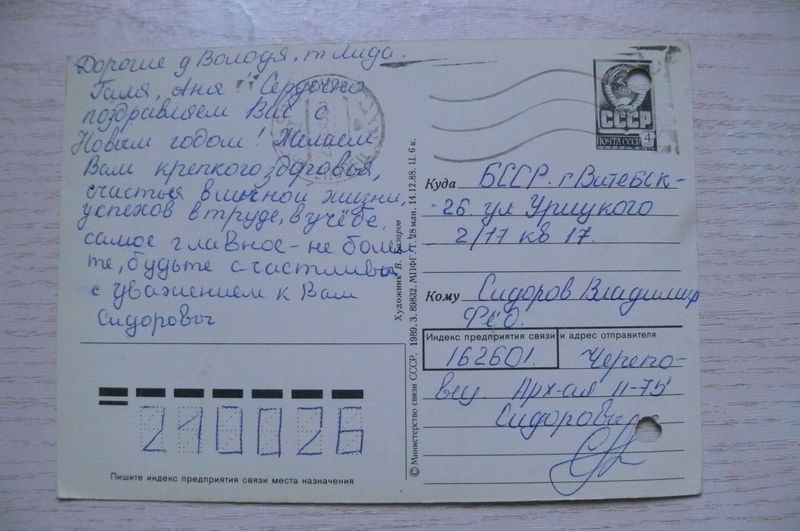 Дорогие д Володя, т Лида.
Галя, Аня Сердечно
поздравляем Вас с
Новым годом! Желаем
Вам крепкого здоровья,
счастья в личной жизни,
успехов в труде, в учёбе,
самое главное - не болей
те, будьте счастливы
с уважением к Вам
Сидоровы
210026
Пишите индекс предприятия связи места назначения
© Министерство связи СССР, 1989. З. 89832. МПФГ. Т. 28 млн. 14.12.88. Ц. 6 к.
СССР
ПОЧТА СССР 4
Куда БССР. г Витебск-
-26. ул Урицкого
2/17 кв 17.
Кому Сидоров Владимир
Фёо.
Индекс предприятия связи и адрес отправителя
162601. Черепо-
вец. Арх-ая 11-75
Сидоровы